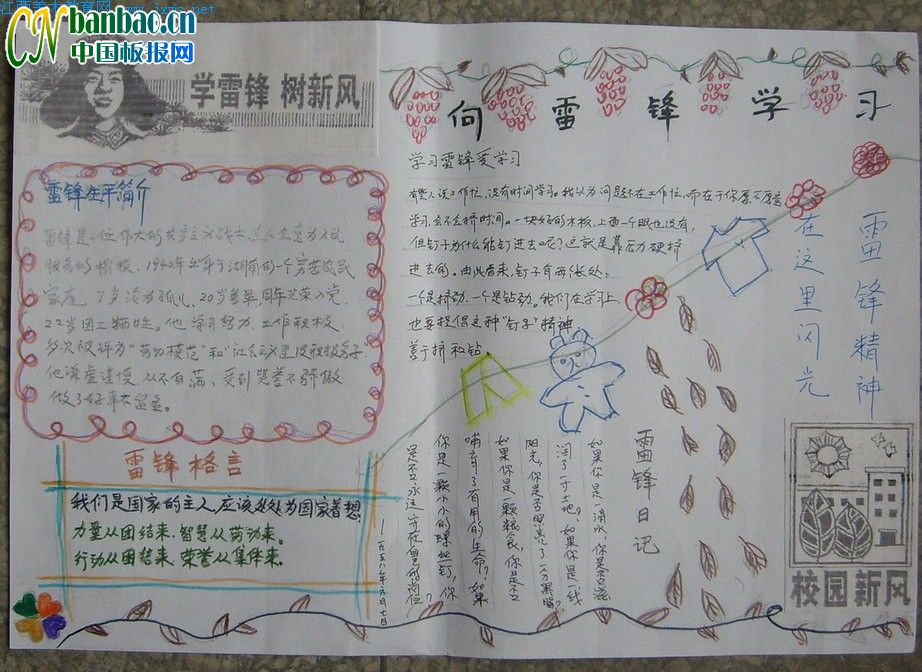 江西美术教育网 www.jxms.net
CN banbao.cn
中国板报网
学雷锋 树新风
向雷锋学习
学习雷锋爱学习
有些人说工作忙、没有时间学习。我认为问题不在工作忙，而在于你愿不愿意
学习，会不会挤时间。一块好好的木板，上面一个眼也没有，
但钉子为什么能钉进去呢？这就是靠压力硬挤
进去的。由此看来，钉子有两个长处：
一个是挤劲，一个是钻劲。我们在学习上，
也要提倡这种“钉子”精神
善于挤和钻。
雷锋生平简介
雷锋是一位伟大的共产主义战士，全心全意为人民
服务的楷模，1940年出身于湖南的一个贫苦农民
家庭，7岁沦为孤儿，20岁参军，同年光荣入党，
22岁因工牺牲。他学习努力，工作积极
多次被评为“劳动模范”和“社会主义建设积极分子”
他谦虚谨慎，从不自满，受到赞誉不骄傲
做了好事不留名。
雷锋格言
我们是国家的主人，应该处处为国家着想。
力量从团结来，智慧从劳动来。
行动从团结来，荣誉从集体来。
雷锋精神
在这里闪光
雷锋日记
如果你是一滴水，你是否滋
润了一寸土地？如果你是一线
阳光，你是否照亮了一分黑暗？
如果你是一颗粮食，你是否
哺育了有用的生命？如果
你是一颗小小的螺丝钉，你
是否永远守在你的岗位？
校园新风